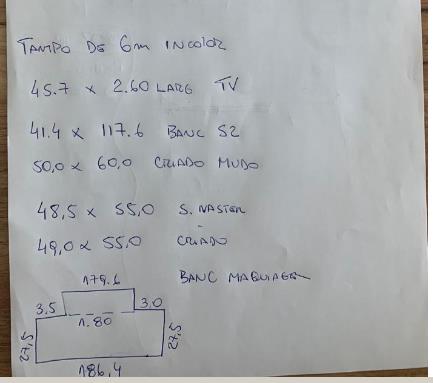 TAMPO DE 6m INCOLOR
45.7 x 2.60 LARG TV
41.4 x 117.6 BANC S2
50,0 x 60,0 CRIADO MUDO
48,5 x 55,0 S. MASTER
49,0 x 55,0 CRIADO
BANC MAQUIAGEM
179.6
3,5 3,0
1.80
27,5 27,5
186,4